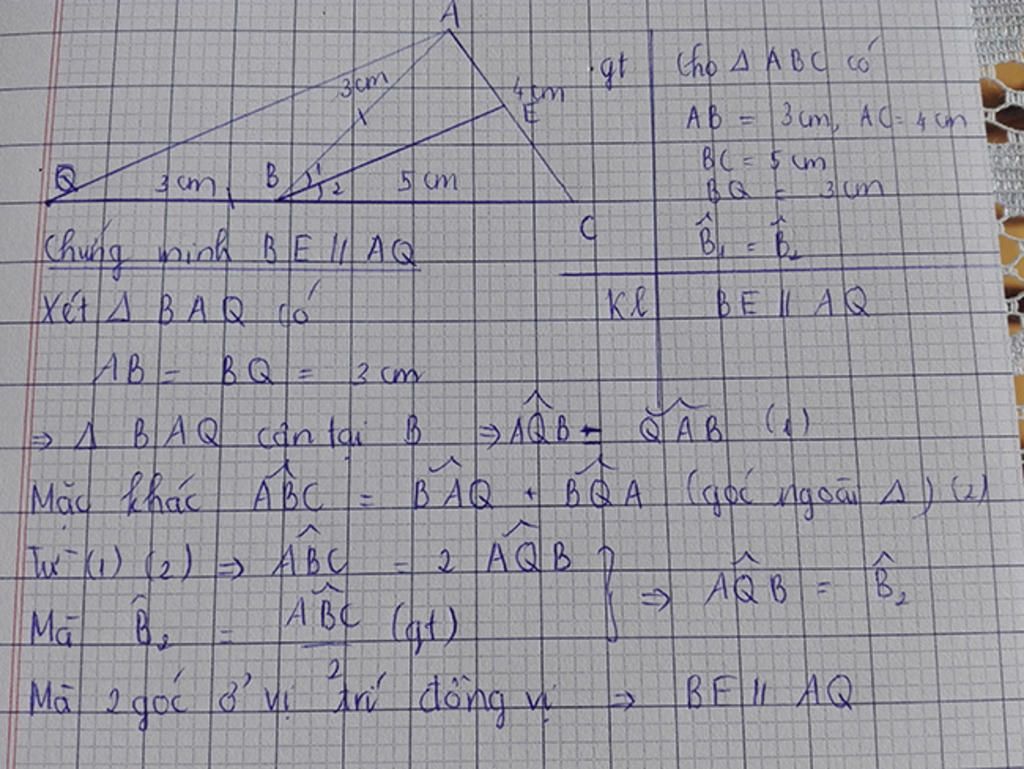 A
3cm
4cm
E
Q
3cm
B
1
2
5cm
C
gt
Cho Δ ABC có
AB = 3cm, AC = 4cm
BC = 5cm
BQ = 3cm
B̂₁ = B̂₂
Kl BE // AQ
Chứng minh BE // AQ
Xét Δ BAQ có
AB = BQ = 3cm
⇒ Δ BAQ cân tại B ⇒ AQ̂B = QÂB (1)
Mặc khác AB̂C = BÂQ + BQ̂A (góc ngoài Δ) (2)
Từ (1) (2) ⇒ AB̂C = 2 AQ̂B
Mà B̂₂ = AB̂C / 2 (gt)
⇒ AQ̂B = B̂₂
Mà 2 góc ở vị trí đồng vị ⇒ BE // AQ